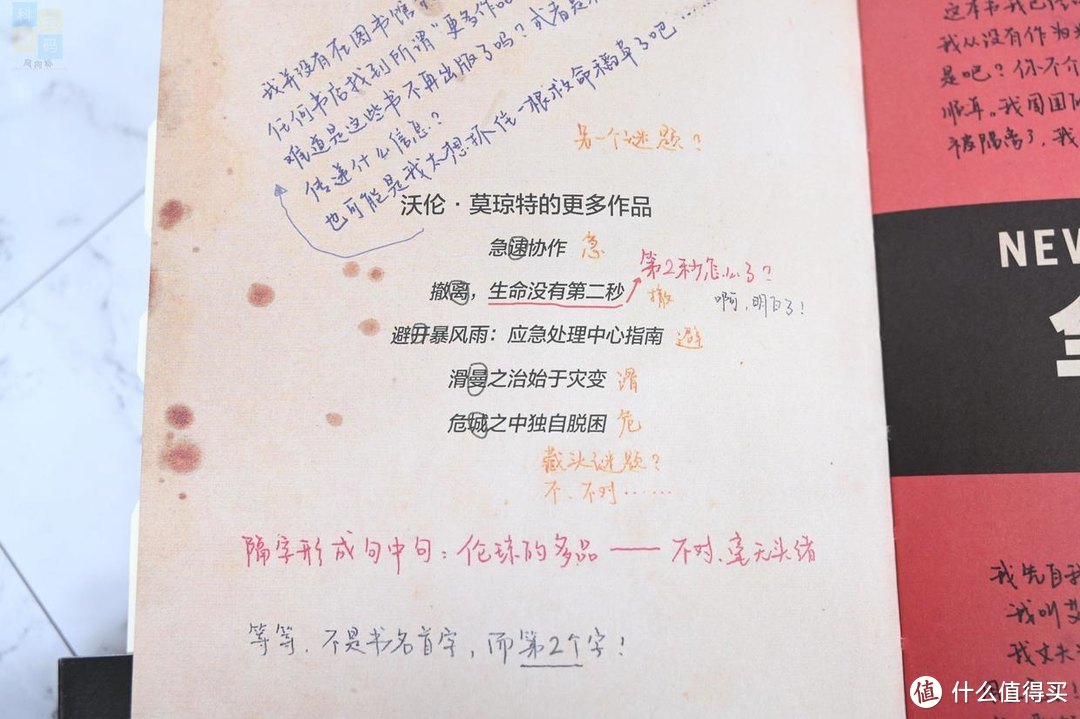 我并没有在图书馆
任何书店找到所谓“更多作品
难道是这些书不再出版了吗？或者是
传递什么信息？
也可能是我太想抓住一根救命稻草了吧……
另一个谜题？
沃伦·莫琼特的更多作品
急速协作 急
第2秒怎么了？
撤离，生命没有第二秒 撤
啊，明白了！
避开暴风雨：应急处理中心指南 避
滑曼之治始于灾变 滑
危城之中独自脱困 危
藏头谜题？
不、不对……
隔字形成句中句：伦琼的多品——不对、毫无头绪
等等、不是书名首字，而第2个字！
这本书我已
我从没有作为
是吧？你不介
顺耳。我周围的
被隔离了，我
NEW
我先自我
我叫艾
我丈夫
值 什么值得买